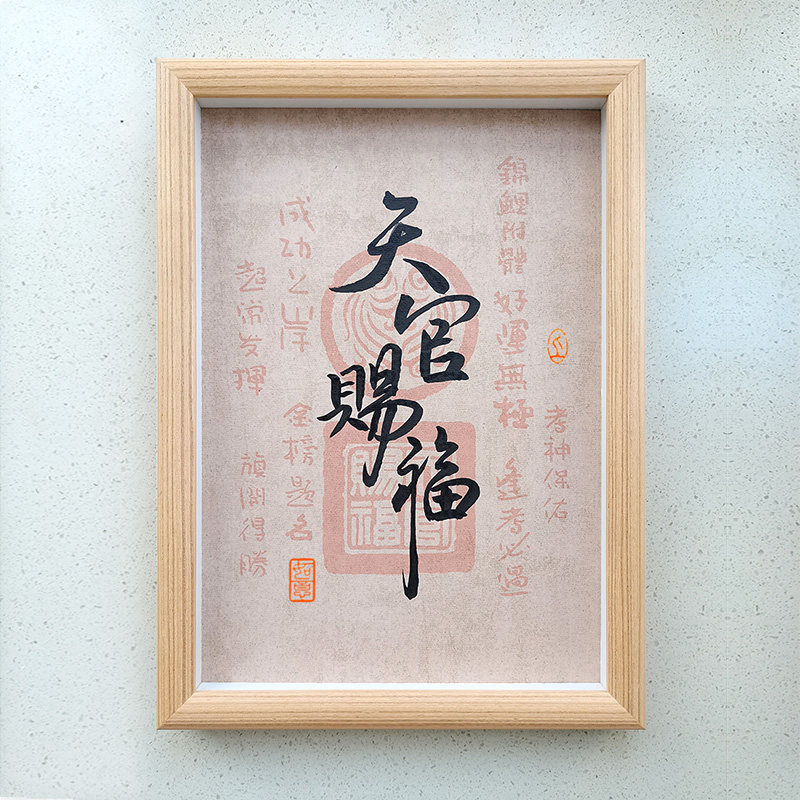 天官賜福
錦鯉附體 好運無極 逢考必過
考神保佑
成功之岸 金榜題名
起常发挥 旗開得勝
賜福
如意